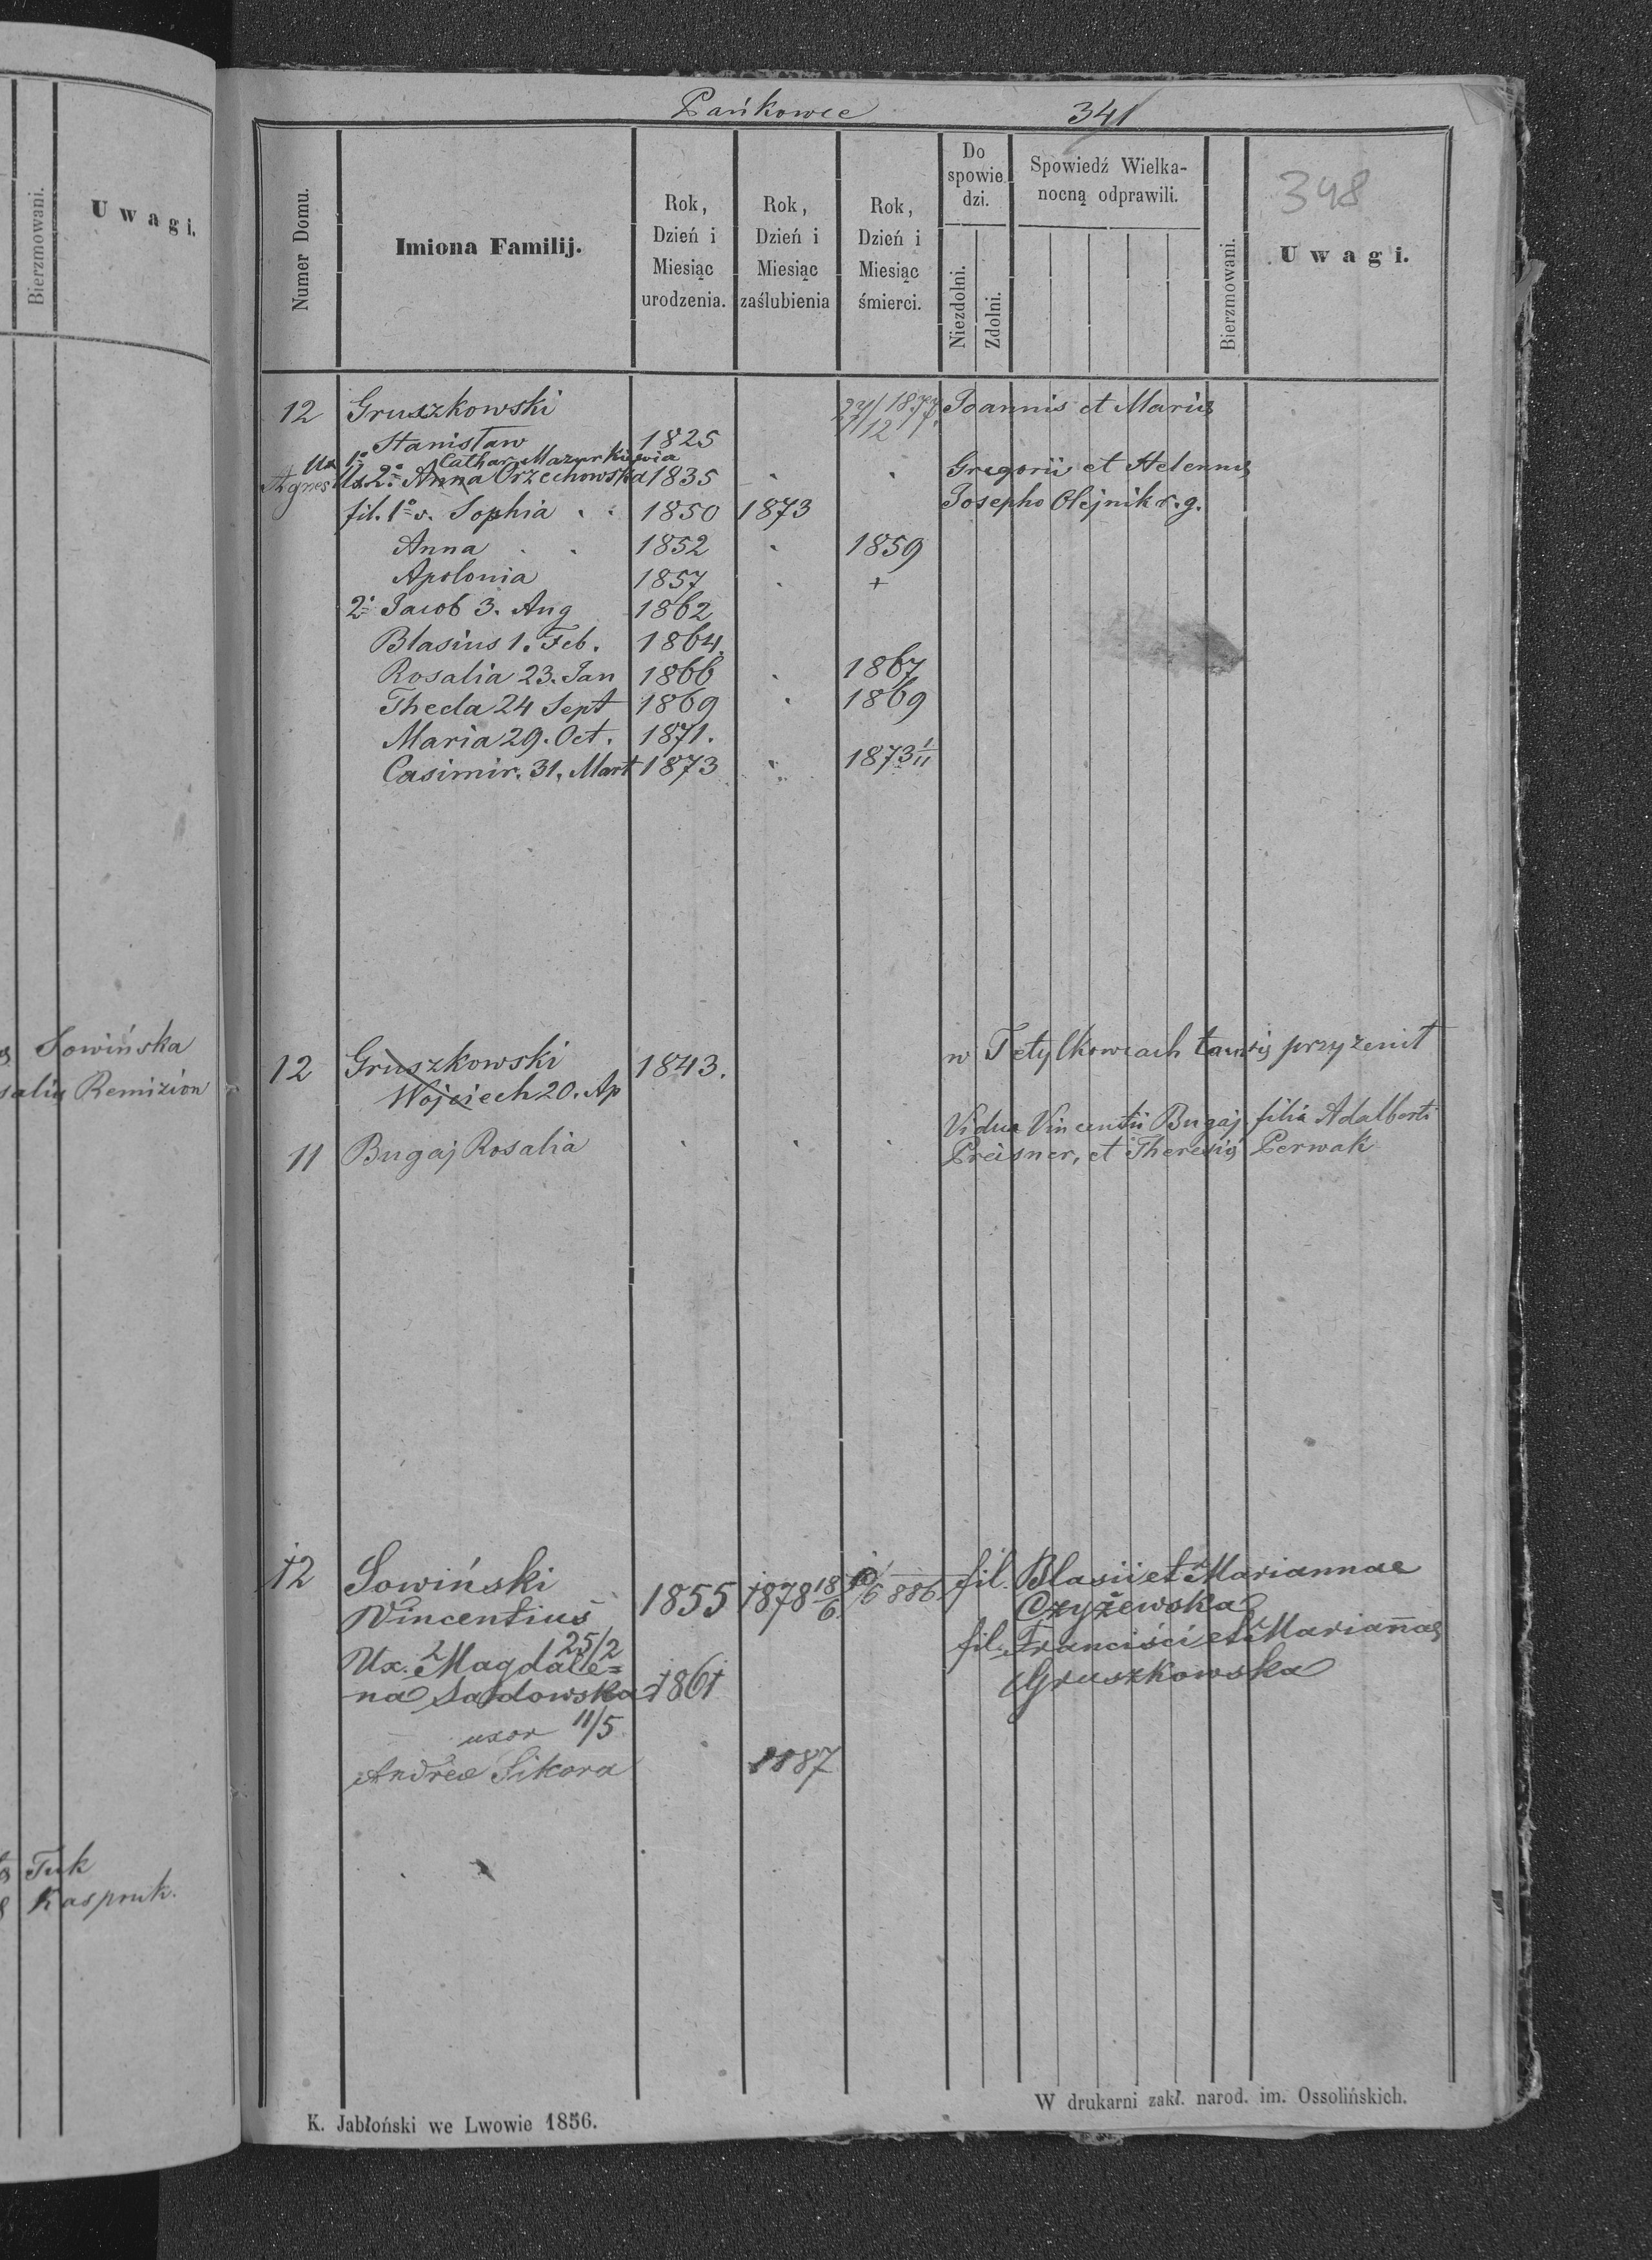 Bierzmowani.
Uwagi.
Sowińska
Remizion
Tuk
Kaspruk.
Pańkowce
341
348
Numer Domu.
Imiona Familij.
Rok,
Dzień i
Miesiąc
urodzenia.
Rok,
Dzień i
Miesiąc
zaślubienia
Rok,
Dzień i
Miesiąc
śmierci.
Do
spowie
dzi.
Niezdolni.
Zdolni.
Spowiedź Wielka-
nocną odprawili.
Bierzmowani.
Uwagi.
12 Gruszkowski 27/12 1877 Joannis et Mariæ
Stanisław 1825
Ux 1º Cathar. Mazurkiewia
Agnes Ux 2º Anna Orzechowska 1835 Gregorii et Helennæ
fil. 1º v. Sophia 1850 1873 Josepho Olejnik r. g.
Anna 1852 1859
Apolonia 1857 +
2º Jacob 3. Aug 1862
Blasius 1. Feb. 1864.
Rosalia 23. Jan 1866 1867
Thecla 24 Sept 1869 1869
Maria 29. Oct. 1871.
Casimir. 31. Mart 1873 1873
12 Gruszkowski 1843. w Tetylkowcach tam się przyżenił
Wojciech 20. Ap
11 Bugaj Rosalia Vidua Vincentii Bugaj filia Adalberti
Preisner, et Theresiæ Perwak
12 Sowiński
Wincentius 1855 1878 18/6 10/6 886 fil. Blasii et Mariannae
Czyżewska
Ux. 2 Magdale= 25/2 fil. Francisci et Mariannae
na Sadowska 1861 Gruszkowska
uxor 11/5
Andreæ Sikora 1887
K. Jabłoński we Lwowie 1856.
W drukarni zakł. narod. im. Ossolińskich.